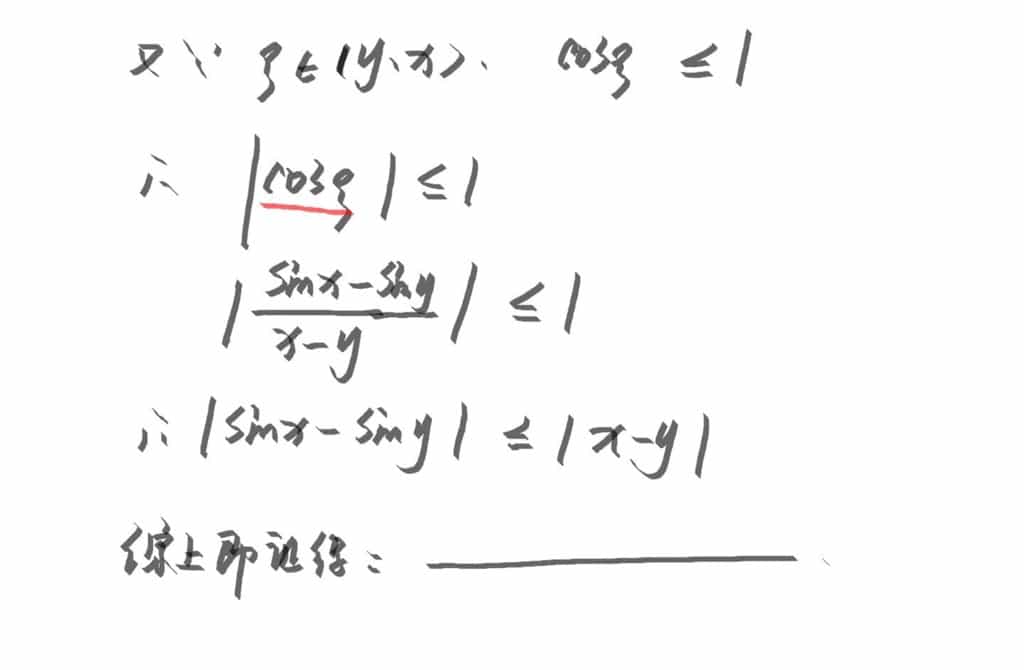 又∵ ξ∈(y,x). cosξ ≤ 1
∴ |cosξ| ≤ 1
|(sinx-siny)/(x-y)| ≤ 1
∴ |sinx-siny| ≤ |x-y|
综上即证得: